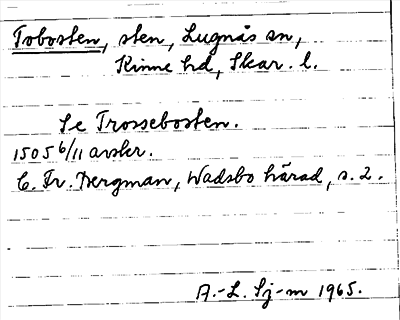 Tobosten, sten, Lugnås sn,
Kinne hd, Skar. l.
Se Trossebosten.
1505 6/11 avskr.
C. Fr. Bergman, Wadsbo härad, s. 2.
A.-L. Sj-m 1965.